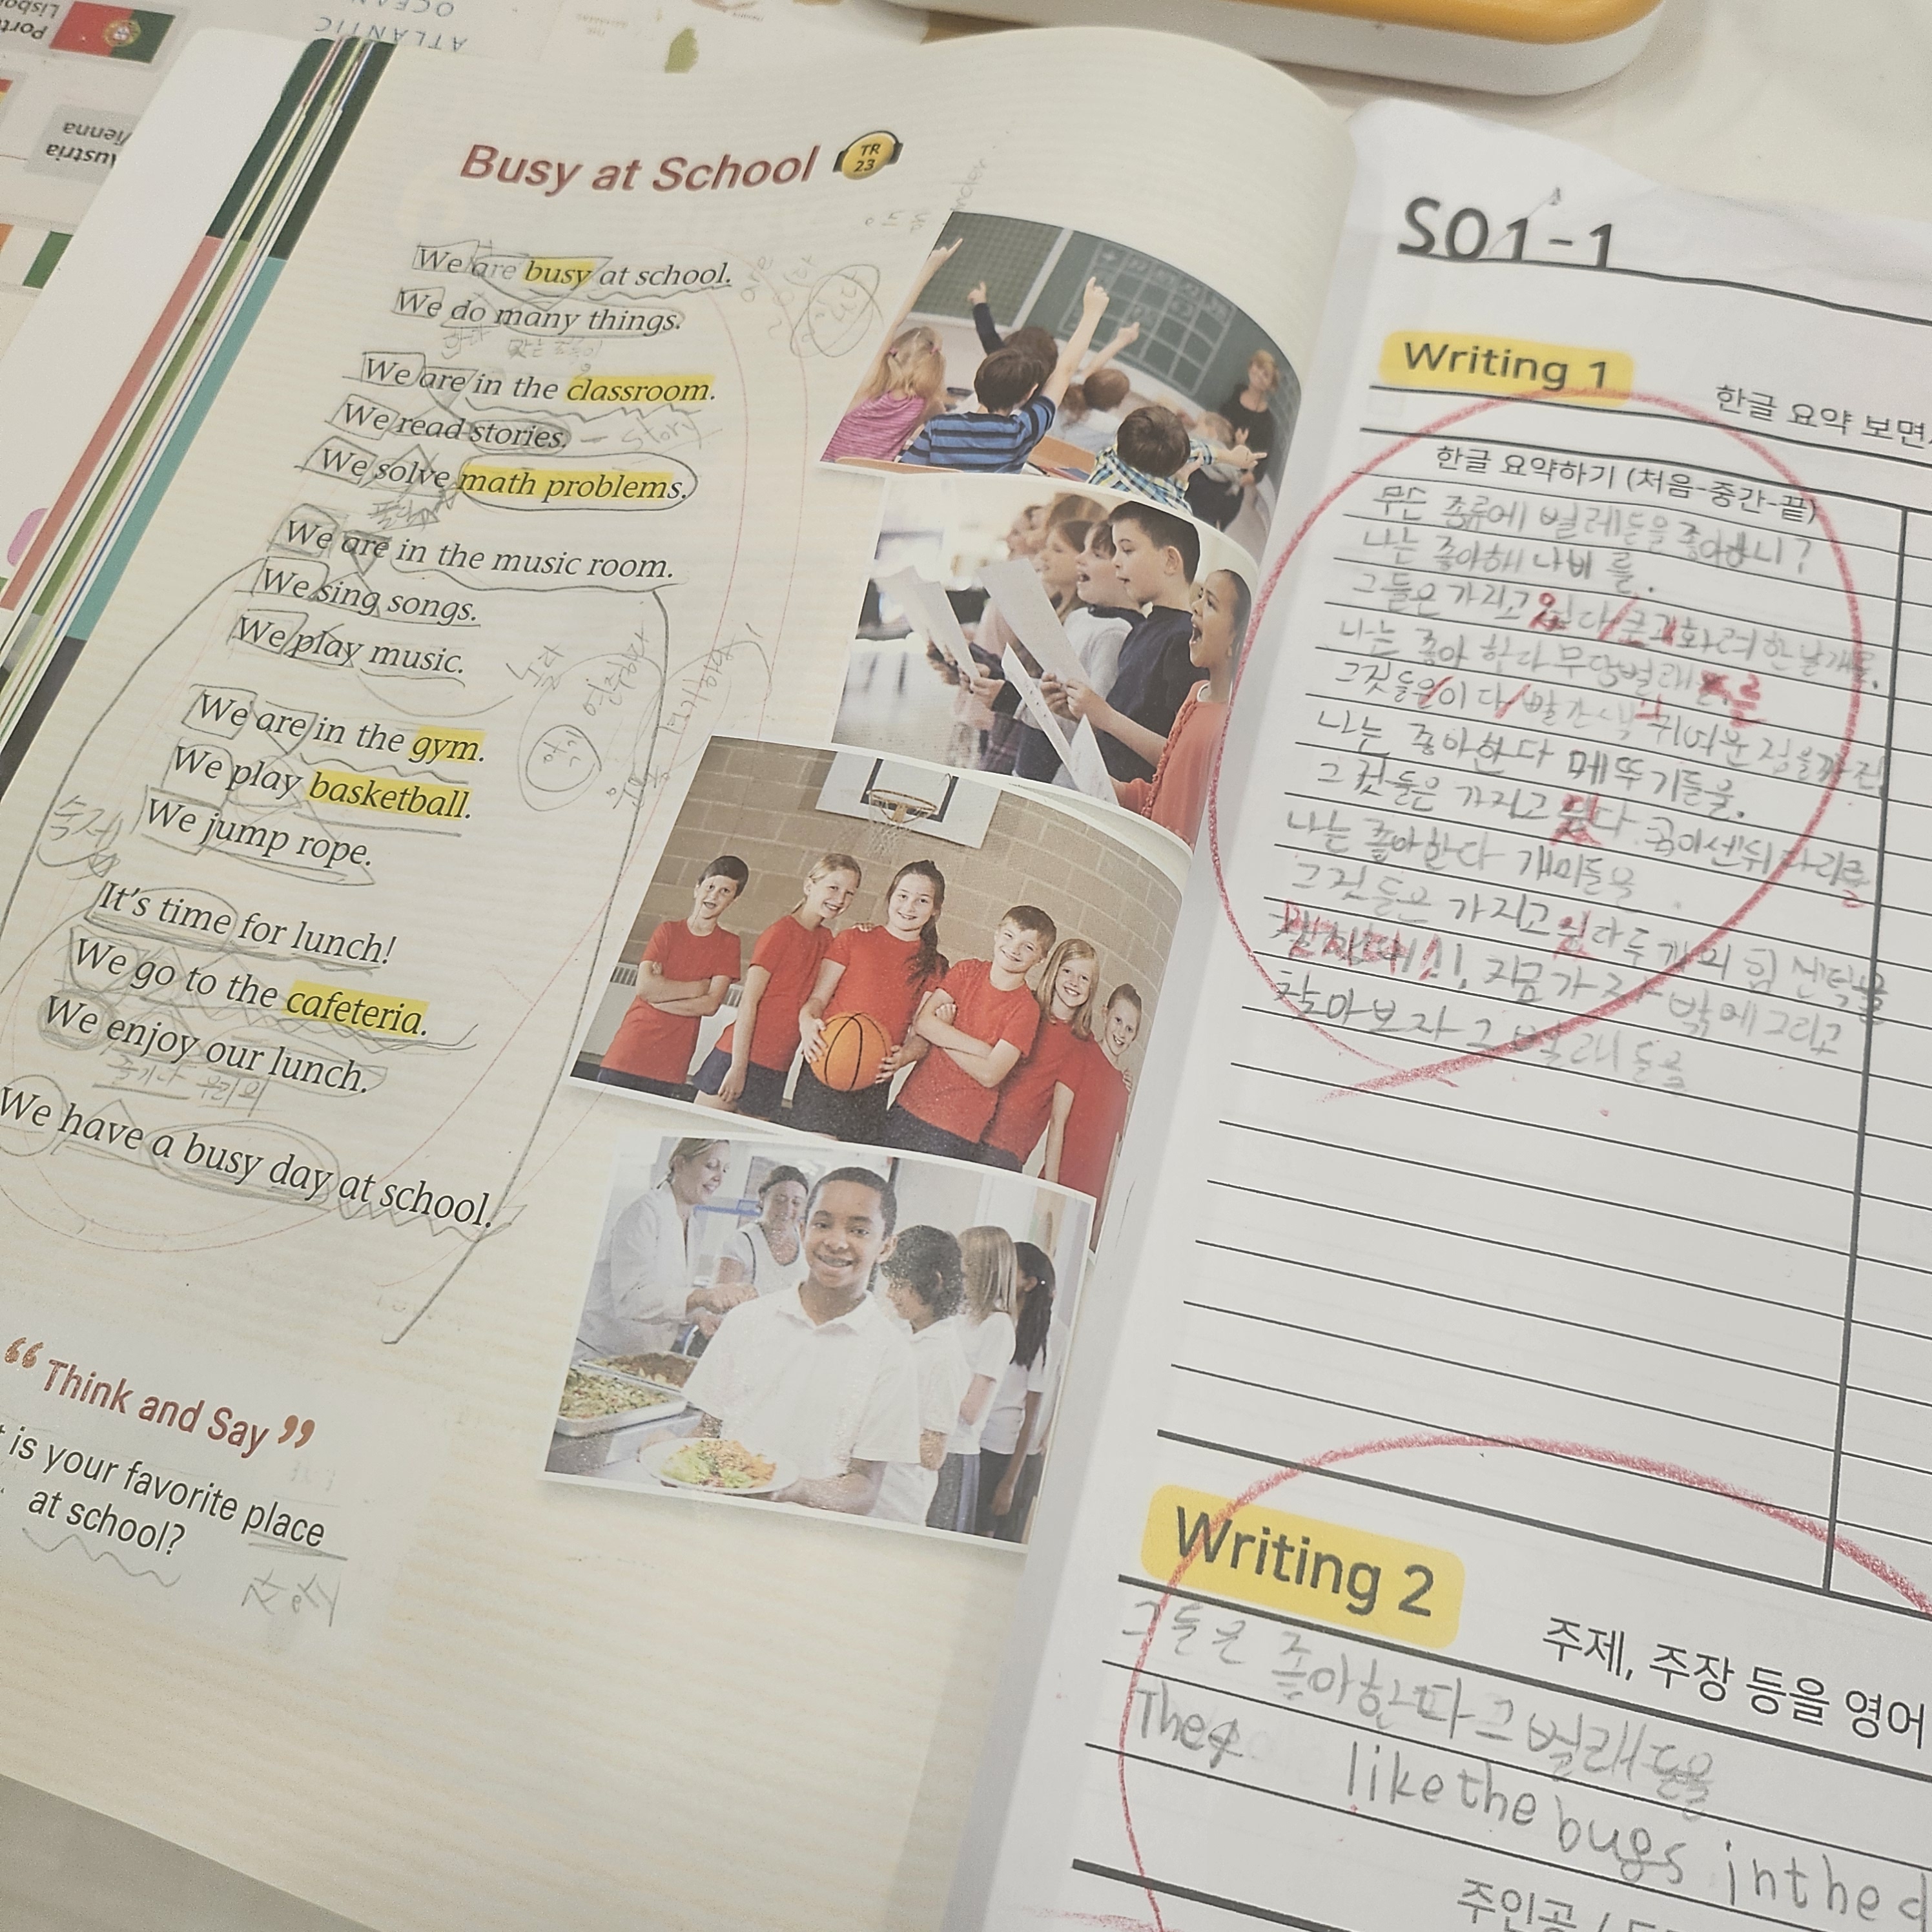 Portu
Lisbo
Austria
Vienna
ATLANTIC
OCEAN
Busy at School
TR
23
We are busy at school.
We do many things.
하다
많은
We are in the classroom.
We read stories. - story
We solve math problems.
풀다
We are in the music room.
We sing songs.
We play music.
놀다
연주하다
We are in the gym.
We play basketball.
We jump rope.
숙제
It's time for lunch!
We go to the cafeteria.
We enjoy our lunch.
즐기다 우리의
We have a busy day at school.
“Think and Say”
is your favorite place
at school?
장소
S01-1
Writing 1
한글 요약 보면,
한글 요약하기 (처음-중간-끝)
무슨 종류에 벌레들을 좋아하니?
나는 좋아해 나비를.
그들은 가지고 있다/크고 화려한 날개를.
나는 좋아한다 무당벌레를
그것들은이다/빨간색 귀여운 점을 가진
나는 좋아한다 메뚜기들을.
그것들은 가지고 있다 굉이센뒤다리를
나는 좋아한다 개미들을
그것들은 가지고 있다 두개의 힘센턱을
지금 가자 밖에 그리고
찾아보자 그 벌레들을
Writing 2
주제, 주장 등을 영어
그들은 좋아한따 그 벌레들을
They like the bugs in the
주인공 /